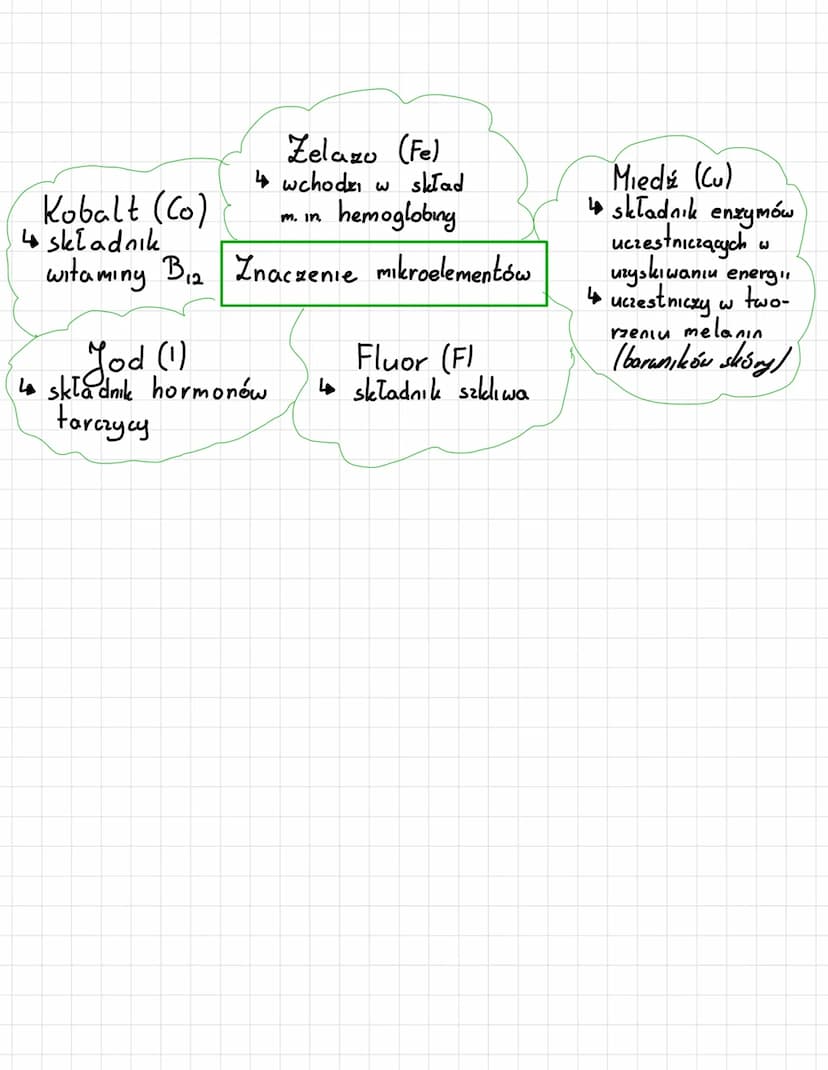 Żelazo (Fe)
↳ wchodzi w skład
m. in hemoglobiny
Kobalt (Co)
↳ składnik
witaminy B₁₂
Miedź (Cu)
↳ składnik enzymów
uczestniczących w
uzyskiwaniu energii
↳ uczestniczy w two-
rzeniu melanin
(barwników skóry)
Znaczenie mikroelementów
Jod (I)
↳ składnik hormonów
tarczycy
Fluor (F)
↳ składnik szkliwa